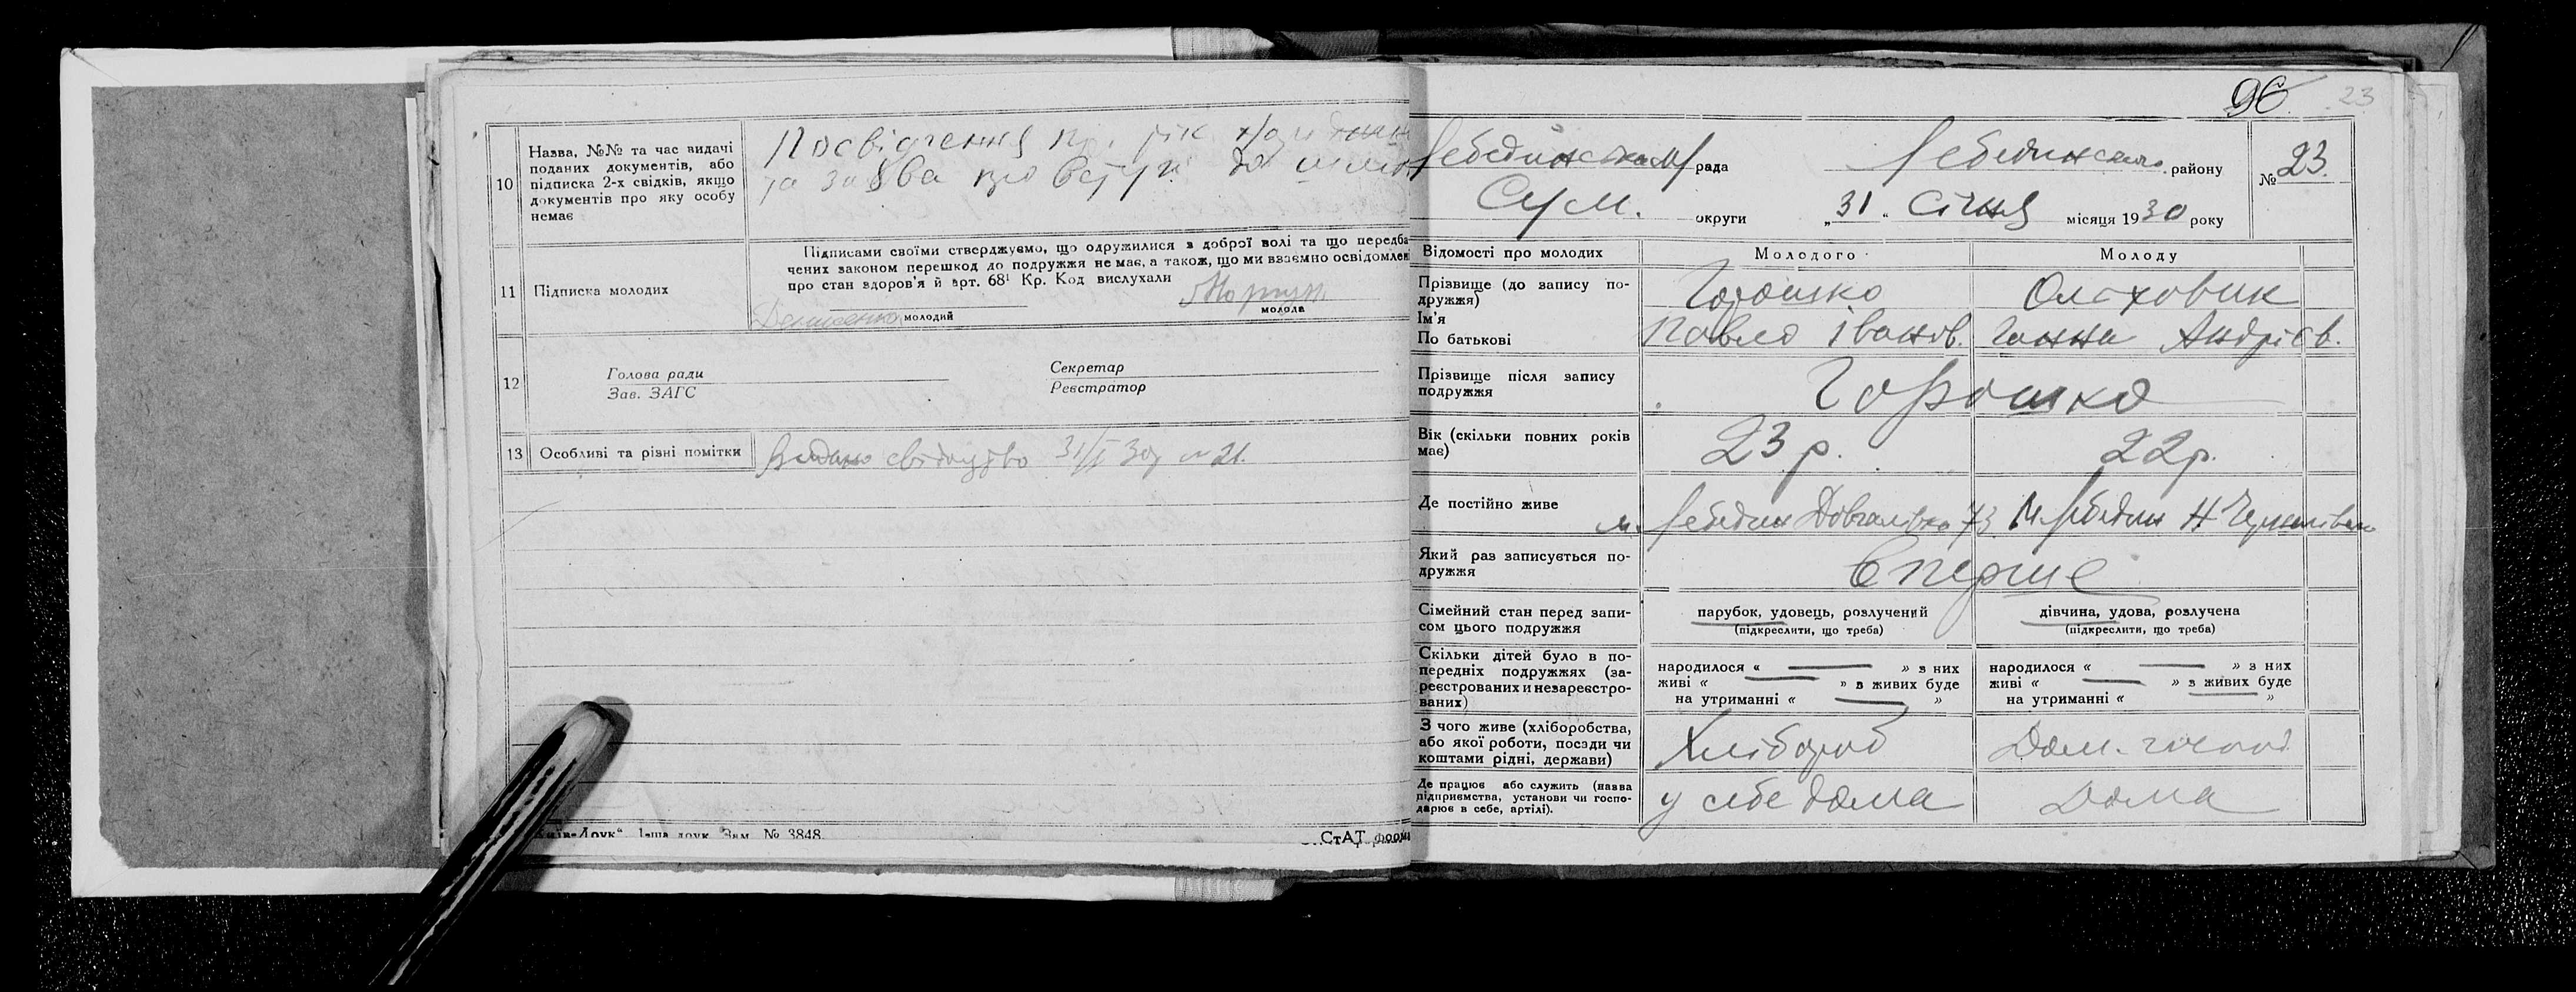 10
Назва, №№ та час видачі
поданих документів, або
підписка 2-х свідків, якщо
документів про яку особу
немає
Посвідчення про рік народження
та заява про вступ до шлюб
11
Підписка молодих
Підписами своїми стверджуємо, що одружилися з доброї волі та що передба
чених законом перешкод до подружжя немає, а також, що ми взаємно освідомлен
про стан здоров'я й арт. 68¹ Кр. Код вислухали
Денисенко молодий
Моргун
молода
12
Голова ради
Зав. ЗАГС
Секретар
Реєстратор
13
Особливі та різні помітки
Видано свідоцтво 31/I 30р № 21.
Київ-Друк". 1-ша друк. Зам. № 3848.
СтАТ форма
96 23
Лебединська М/рада Лебединського району
№ 23.
Сум. округи „31" Січня місяця 1930 року
Відомості про молодих
Молодого
Молоду
Прізвище (до запису по-
дружжя)
Горошко
Ольховик
Ім'я
По батькові
Павло Іванов.
Ганна Андрієв.
Прізвище після запису
подружжя
Горошко
Вік (скільки повних років
має)
23 р.
22 р.
Де постійно живе
м. Лебедин Довгалівка 73
М. Лебедин Н
Який раз записується по-
дружжя
Вперше
Сімейний стан перед запи-
сом цього подружжя
парубок, удовець, розлучений
(підкреслити, що треба)
дівчина, удова, розлучена
(підкреслити, що треба)
Скільки дітей було в по-
передніх подружжях (за-
реєстрованих и незареєстро-
ваних)
народилося « — » з них
живі « — » з живих буде
на утриманні « — »
народилося « — » з них
живі « — » з живих буде
на утриманні « — »
З чого живе (хліборобства,
або якої роботи, посади чи
коштами рідні, держави)
Хлібороб
Дом. господ.
Де працює або служить (назва
підприємства, установи чи госпо-
дарює в себе, артілі).
у себе дома
Дома